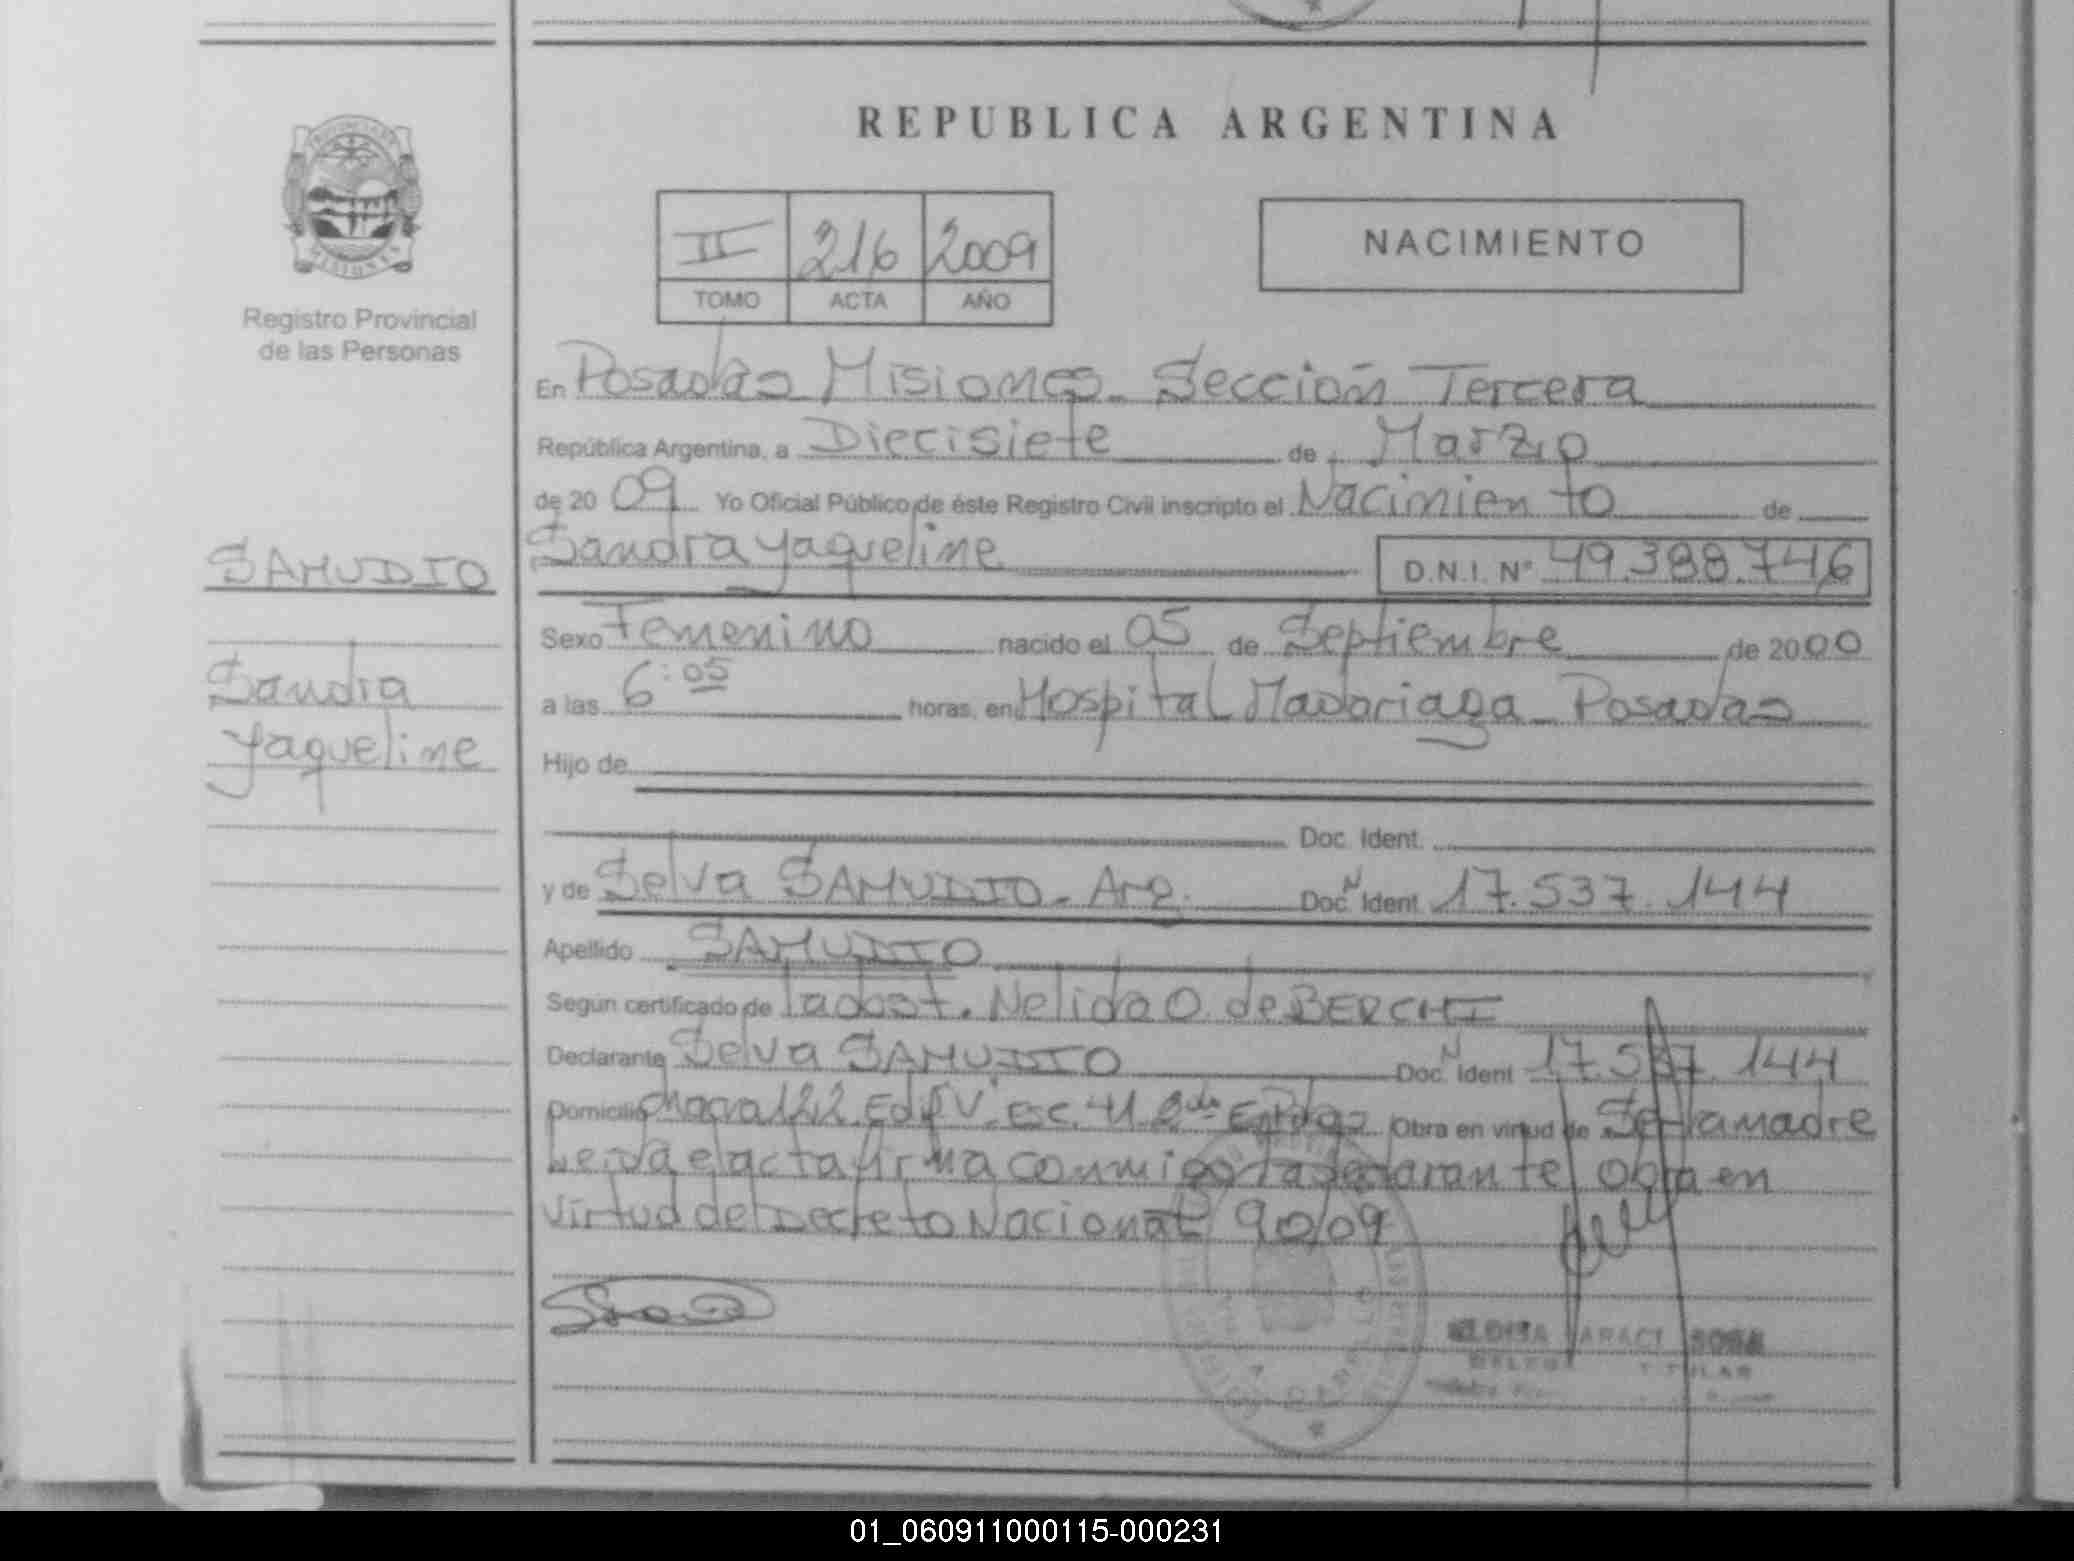 REPUBLICA ARGENTINA
II 216 2009
TOMO ACTA AÑO
NACIMIENTO
MISIONES
Registro Provincial
de las Personas
SAMUDIO
Sandra
Yaqueline
En Posadas Misiones. Sección Tercera
República Argentina, a Diecisiete de Marzo
de 2009 Yo Oficial Público de éste Registro Civil inscripto el Nacimiento de
Sandra Yaqueline D.N.I. N° 49.388.746
Sexo Femenino nacido el 05 de Septiembre de 2000
a las 6:05 horas, en Hospital Madariaga Posadas
Hijo de
Doc. Ident.
y de Selva SAMUDIO. Arg. Doc. N Ident. 17.537.144
Apellido SAMUDIO
Según certificado de la obst. Nelida O. de BERCHI
Declarante Selva SAMUDIO Doc. N Ident 17.537.144
Domicilio chacra 122 Edif V esc. 41 Obra en virtud de Ser la madre
Leida el acta firma conmigo la declarante obra en
virtud del Decreto Nacional 90/09
ARACI SOSA
TITULAR
01_060911000115-000231